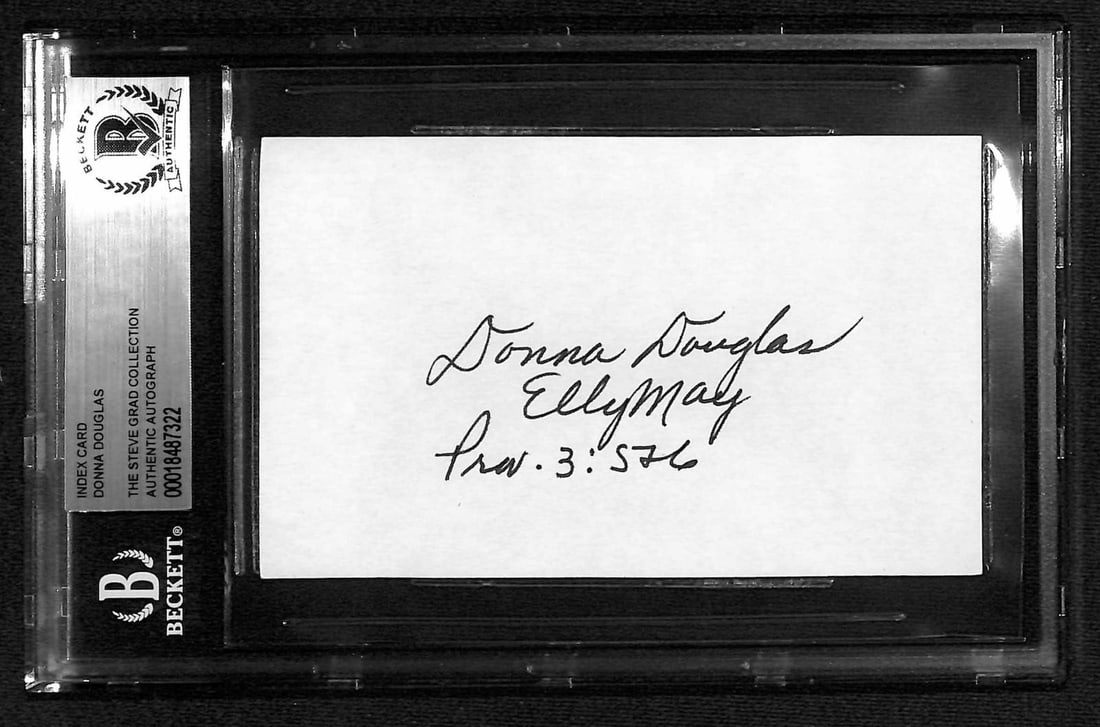 BECKETT
B
AUTHENTIC
INDEX CARD
DONNA DOUGLAS
THE STEVE GRAD COLLECTION
AUTHENTIC AUTOGRAPH
00018487322
B
BECKETT®
Donna Douglas
Elly May
Prov. 3:5+6